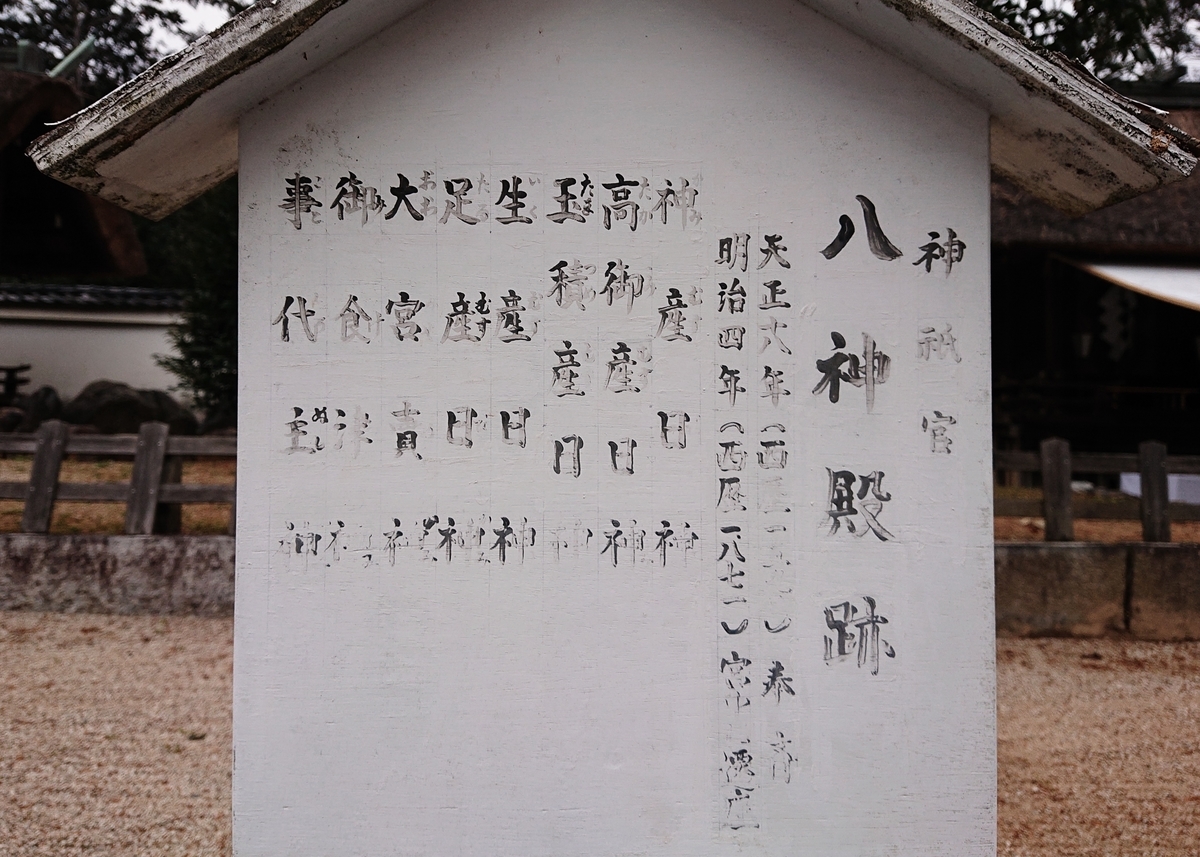 神祇官
八神殿跡
天正十八年（西暦一五九〇）奉斎
明治四年（西暦一八七一）宮中遷座
神産日神
高御産日神
玉積産日神
生産日神
足産日神
大宮賣神
御食津神
事代主神